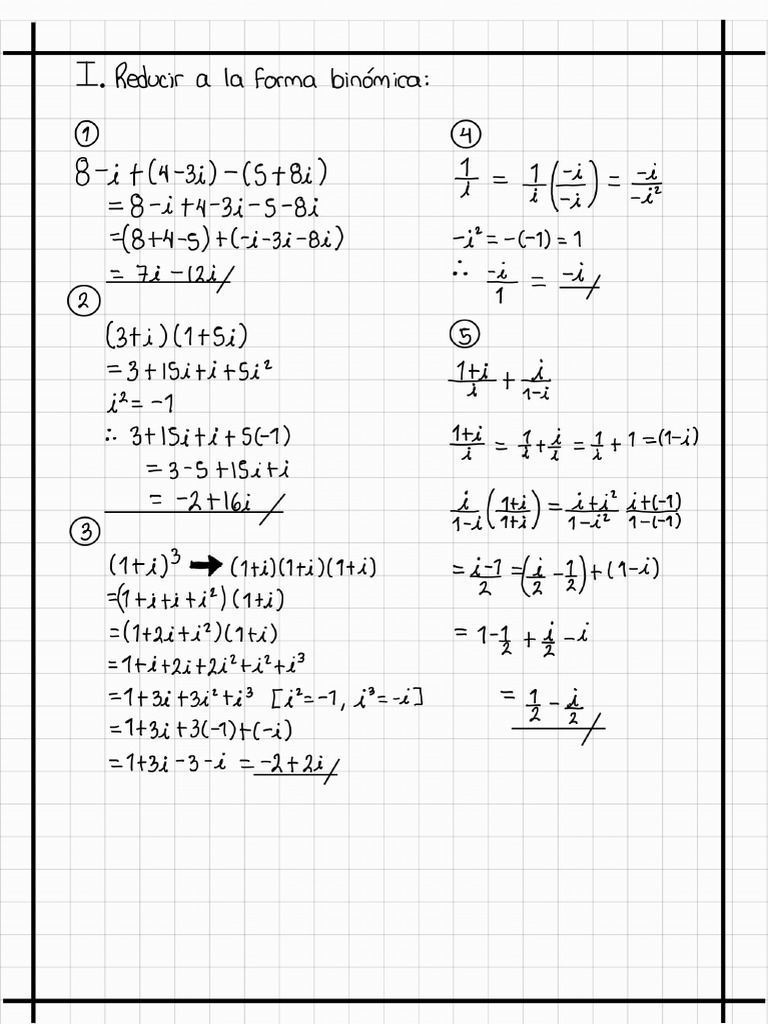 I. Reducir a la forma binómica:
①
8-i+(4-3i)-(5+8i)
=8-i+4-3i-5-8i
=(8+4-5)+(-i-3i-8i)
= 7i-12i/
②
(3+i)(1+5i)
=3+15i+i+5i²
i²=-1
∴ 3+15i+i+5(-1)
=3-5+15i+i
= -2+16i /
③
(1+i)³ ➡ (1+i)(1+i)(1+i)
=(1+i+i+i²)(1+i)
=(1+2i+i²)(1+i)
=1+i+2i+2i²+i²+i³
=1+3i+3i²+i³ [i²=-1, i³=-i]
=1+3i+3(-1)+(-i)
=1+3i-3-i = -2+2i/
④
1/i = 1/i (-i/-i) = -i/-i²
-i²=-(-1)=1
∴ -i/1 = -i/
⑤
1+i/i + i/1-i
1+i/i = 1/i + i/i = 1/i + 1 =(1-i)
i/1-i (1+i/1+i) = i+i²/1-i² i+(-1)/1-(-1)
= i-1/2 =(i/2 - 1/2)+(1-i)
= 1-1/2 + i/2 -i
= 1/2 - i/2 /